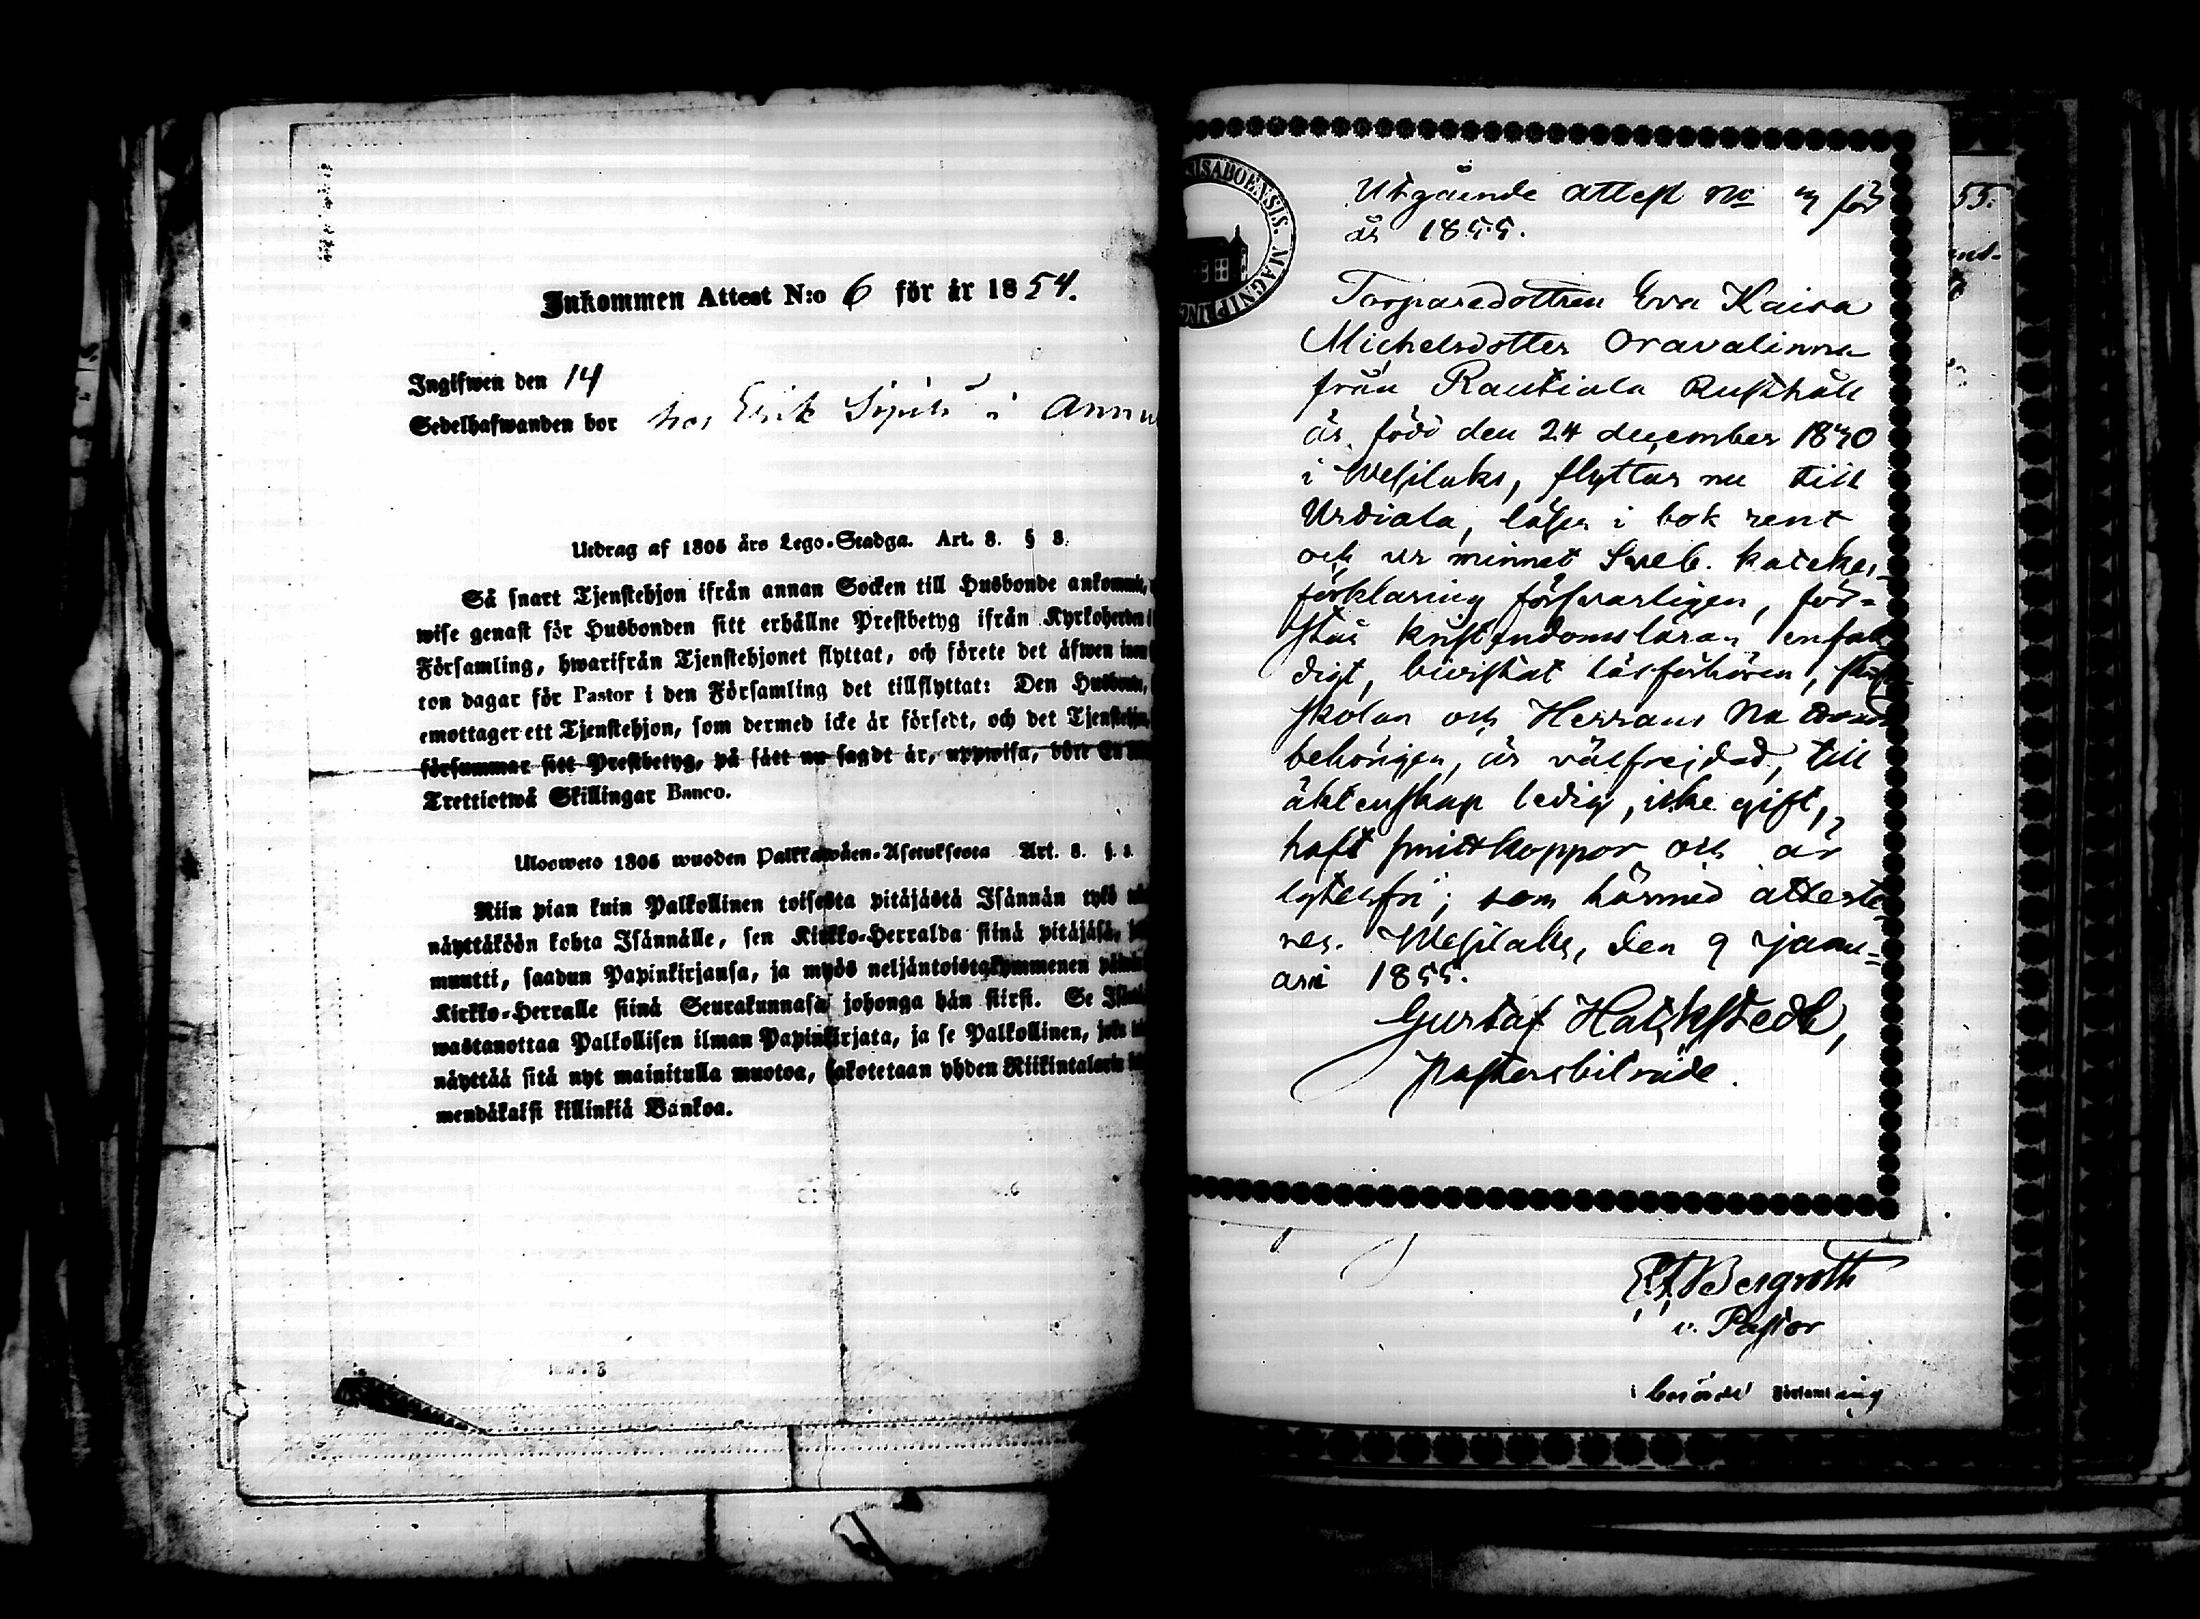 Inkommen Attest N:o 6 för år 1854.
Ingifwen den 14
Sedelhafwanden bor hos Erik Sipilä i Annu
Utdrag af 1805 års Lego-Stadga. Art. 8. § 8.
Så snart Tjenstehjon ifrån annan Socken till Husbonde ankommit,
wise genast för Husbonden sitt erhållne Prestbetyg ifrån Kyrkoherden i
Församling, hwarifrån Tjenstehjonet flyttat, och förete det äfwen inom
ton dagar för Pastor i den Församling det tillflyttat: Den Husbonde,
emottager ett Tjenstehjon, som dermed icke är försedt, och det Tjenstehjon,
försummar sitt Prestbetyg, på sätt nu sagdt är, uppwisa, böte En
Trettiotwå Skillingar Banco.
Ulosweto 1805 wuoden Palkkawäen-Asetuksesta Art. 8. §.
Niin pian kuin Palkollinen toisesta pitäjästä Isännän tykö
näyttäköön kohta Isännälle, sen Kirkko-Herralda siinä pitäjäsä,
muutti, saadun Papinkirjansa, ja myös neljäntoistakymmenen päiwän
Kirkko-Herralle siinä Seurakunnasa johonga hän siirsi. Se Isäntä
wastanottaa Palkollisen ilman Papinkirjata, ja se Palkollinen, joka
näyttää sitä nyt mainitulla muotoa, sakotetaan yhden Riikintalarin
mendäkaksi killinkiä Bankoa.
USABOENSIS. MAGNI PRINC
Utgående attest No 7 för
år 1855.
Torparedottren Eva Kaisa
Michelsdotter Oravalinna
från Rautiala Rusthåll
är född den 24 december 1840
i Wesilaks, flyttar nu till
Urdiala, läser i bok rent
och ur minnet Sveb. katekes-
förklaring försvarligen, för-
står kristendomsläran enfal
digt, bivistat läsförhören, skrift
skolan och Herrans Nattvard
behörigen, är välfrejdad, till
äktenskap ledig, icke gift,
haft smittkoppor och är
lytesfri; som härmed atteste
res. Wesilaks, den 9 janu-
ari 1855.
Gustaf Hackstedt,
Pastorsbiträde.
Bergroth
v. Pastor
i Församling
55.